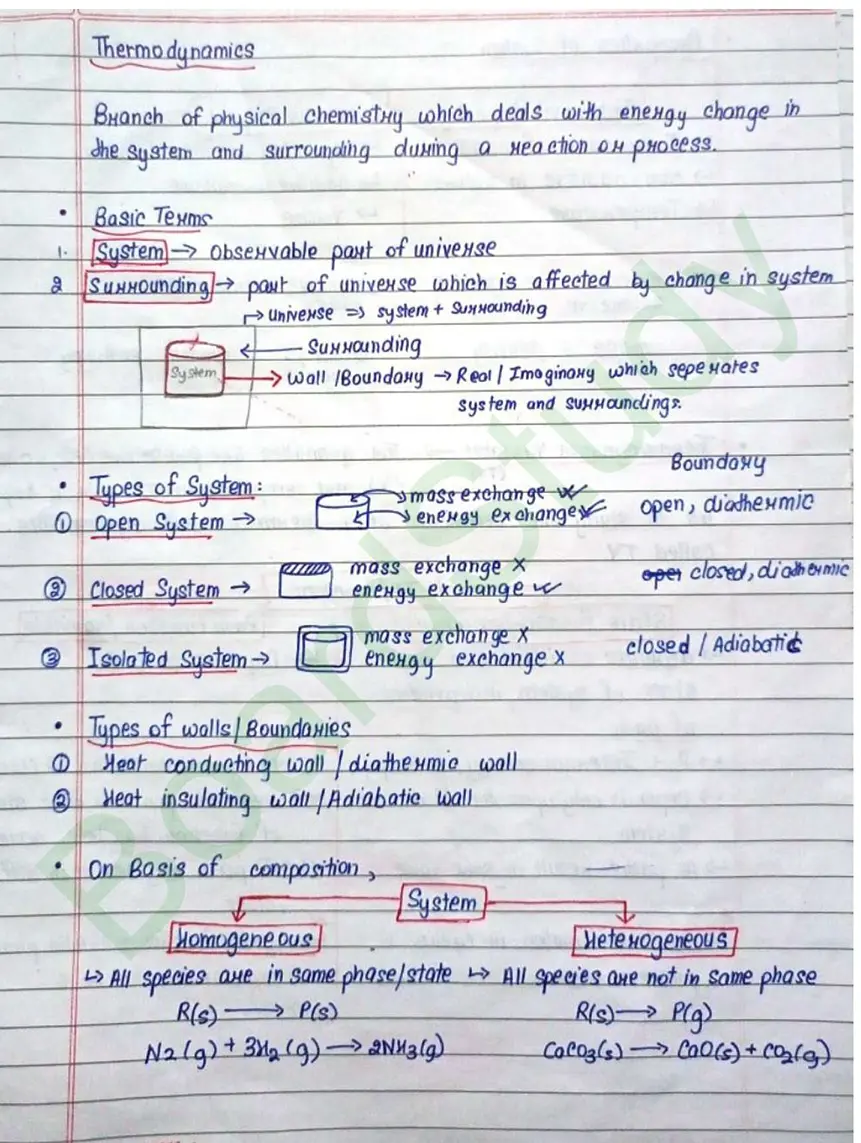 Thermodynamics
Branch of physical chemistry which deals with energy change in
the system and surrounding during a reaction or process.
• Basic Terms
1. System → Observable part of universe
2 Surrounding → part of universe which is affected by change in system
→ universe => system + Surrounding
← Surrounding
System
→ Wall /Boundary → Real / Imaginary which seperates
system and surroundings.
Boundary
• Types of System:
① Open System → mass exchange ✓ open, diathermic
energy exchange ✓
② Closed System → mass exchange X closed, diathermic
energy exchange ✓
③ Isolated System → mass exchange X closed / Adiabatic
energy exchange X
• Types of walls/Boundaries
① Heat conducting wall / diathermic wall
② Heat insulating wall / Adiabatic wall
• On Basis of composition,
System
Homogeneous Heterogeneous
↳ All species are in same phase/state ↳ All species are not in same phase
R(s) → P(s) R(s) → P(g)
N2(g) + 3H2(g) → 2NH3(g) CaCO3(s) → CaO(s) + CO2(g)
BoardStudy